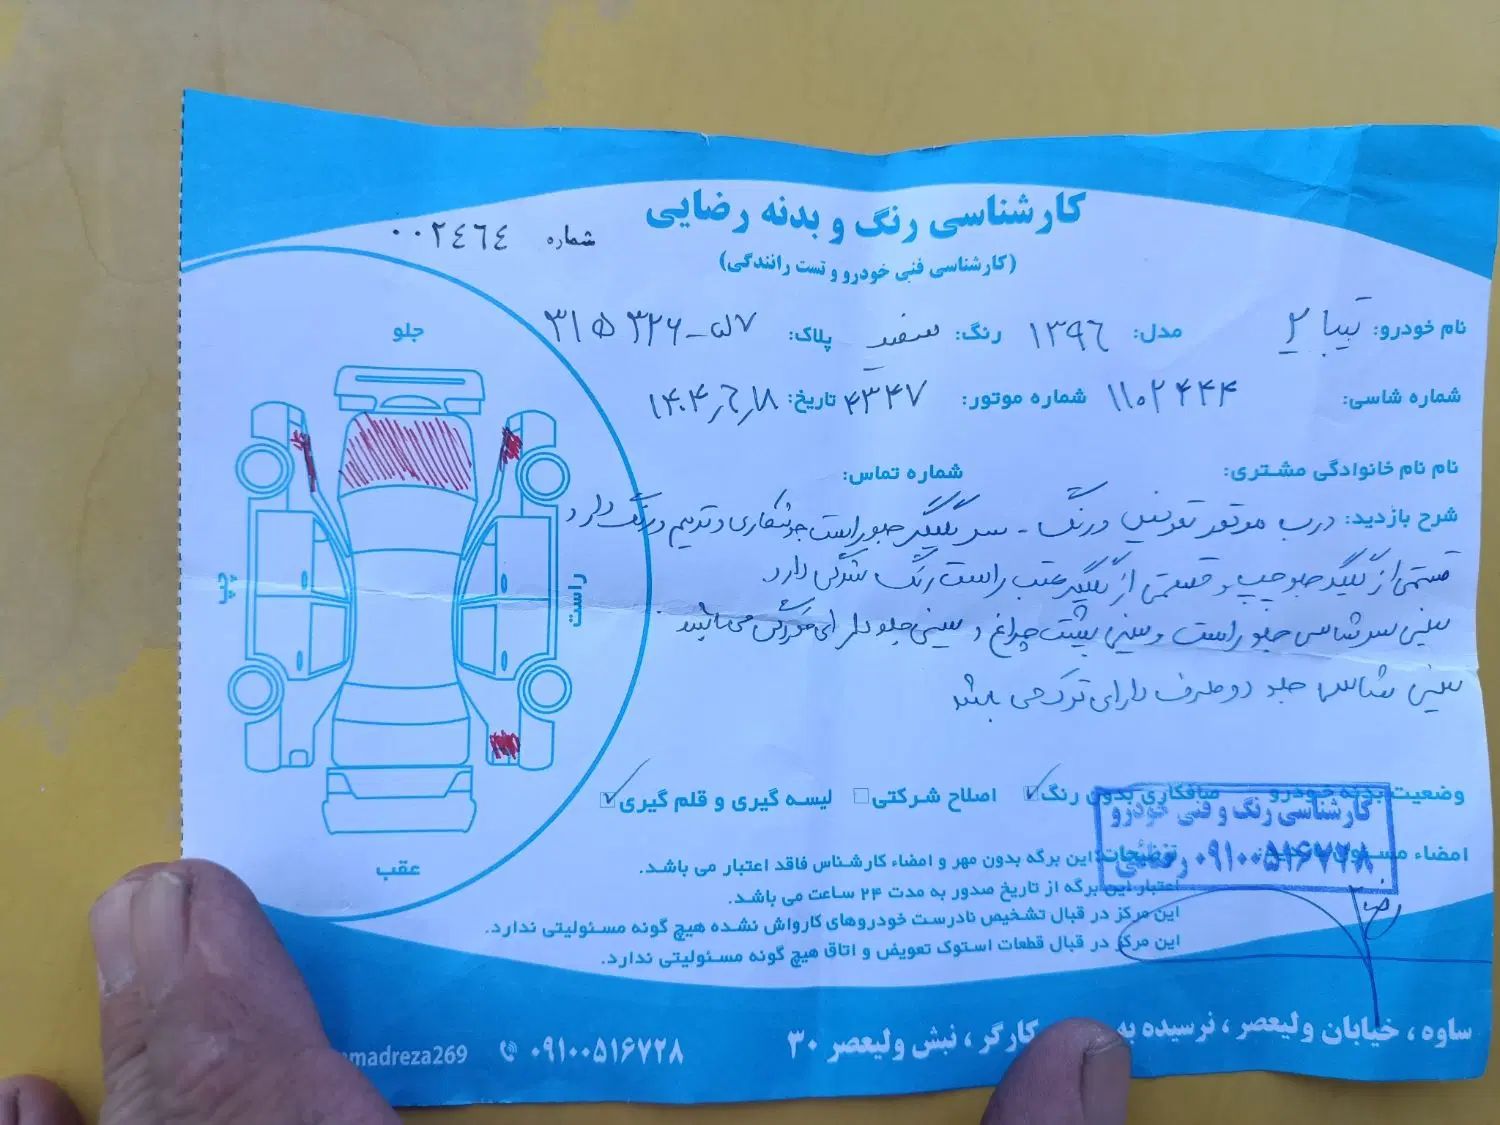 کارشناسی رنگ و بدنه رضایی
(کارشناسی فنی خودرو و تست رانندگی)
شماره ۰۰۲۴۶۴
نام خودرو: تیبا ۲ مدل: ۱۳۹۶ رنگ: سفید پلاک:
شماره شاسی: ۱۱۰۲۴۴۴ شماره موتور: ۴۳۴۷ تاریخ: ۱۴۰۴٫۶٫۱۸
نام نام خانوادگی مشتری: شماره تماس:
شرح بازدید: درب موتور تعویض و رنگ - سر گلگیر جلو راست جوشکاری و ترمیم و رنگ دارد
قسمتی از گلگیر جلو چپ و قسمتی از گلگیر عقب راست رنگ شدگی دارد.
سینی سر شاسی جلو راست و سینی پشت چراغ و سینی جلو دارای خوردگی می باشد.
سینی شاسی جلو دو طرف دارای ترک می باشد
جلو
چپ
راست
عقب
وضعیت بدنه خودرو صافکاری بدون رنگ ☑ اصلاح شرکتی □ لیسه گیری و قلم گیری ☑
کارشناسی رنگ و فنی خودرو
۰۹۱۰۰۵۱۶۷۲۸ رضائی
امضاء
توضیحات: این برگه بدون مهر و امضاء کارشناس فاقد اعتبار می باشد.
اعتبار این برگه از تاریخ صدور به مدت ۲۴ ساعت می باشد.
این مرکز در قبال تشخیص نادرست خودروهای کارواش نشده هیچ گونه مسئولیتی ندارد.
این مرکز در قبال قطعات استوک تعویض و اتاق هیچ گونه مسئولیتی ندارد.
ساوه ، خیابان ولیعصر ، نرسیده به کارگر ، نبش ولیعصر ۳۰
۰۹۱۰۰۵۱۶۷۲۸
madreza269